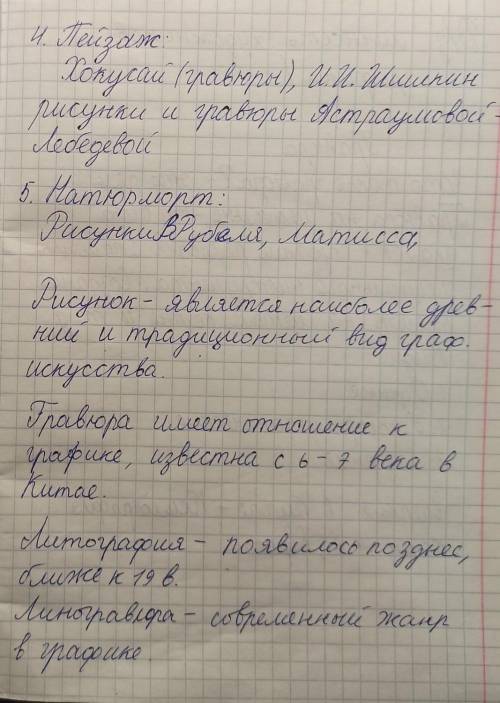 4. Пейзаж:
Хокусай (гравюры), И.И. Шишкин
рисунки и гравюры Астраумовой-
Лебедевой
5. Натюрморт:
Рисунки Врубеля, Матисса,
Рисунок - является наиболее древ-
ний и традиционный вид граф.
искусства.
Гравюра имеет отношение к
графике, известна с 6-7 века в
Китае.
Литография - появилось позднее,
ближе к 19 в.
Линогравюра - современный жанр
в графике.